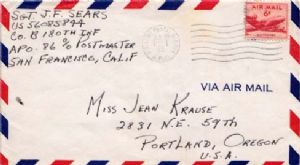 SGT. J.F. SEARS
US 56085844
CO. B 180TH INF
APO 86 % POSTMASTER
SAN FRANCISCO, CALIF
AIR MAIL
6¢
VIA AIR MAIL
MISS JEAN KRAUSE
2831 N.E. 59TH
PORTLAND, OREGON
U.S.A.